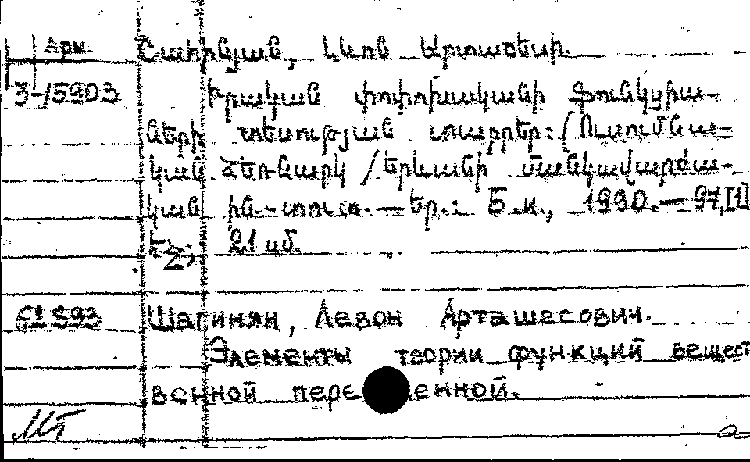 Арм. Շահինյան, Լևոն Արտաշեսի.
3-15903 Իրական փոփոխականի ֆունկցիա-
ների տեսության տարրեր: (Ուսումնա-
կան ձեռնարկ / Երևանի մանկավարժա-
կան ին-տուտ. — Եր.: Բ.ի., 1990. — 97,[1]
էջ; 21 սմ.
Шагинян, Левон Арташесович.
Элементы теории функций вещест
венной пере енной.